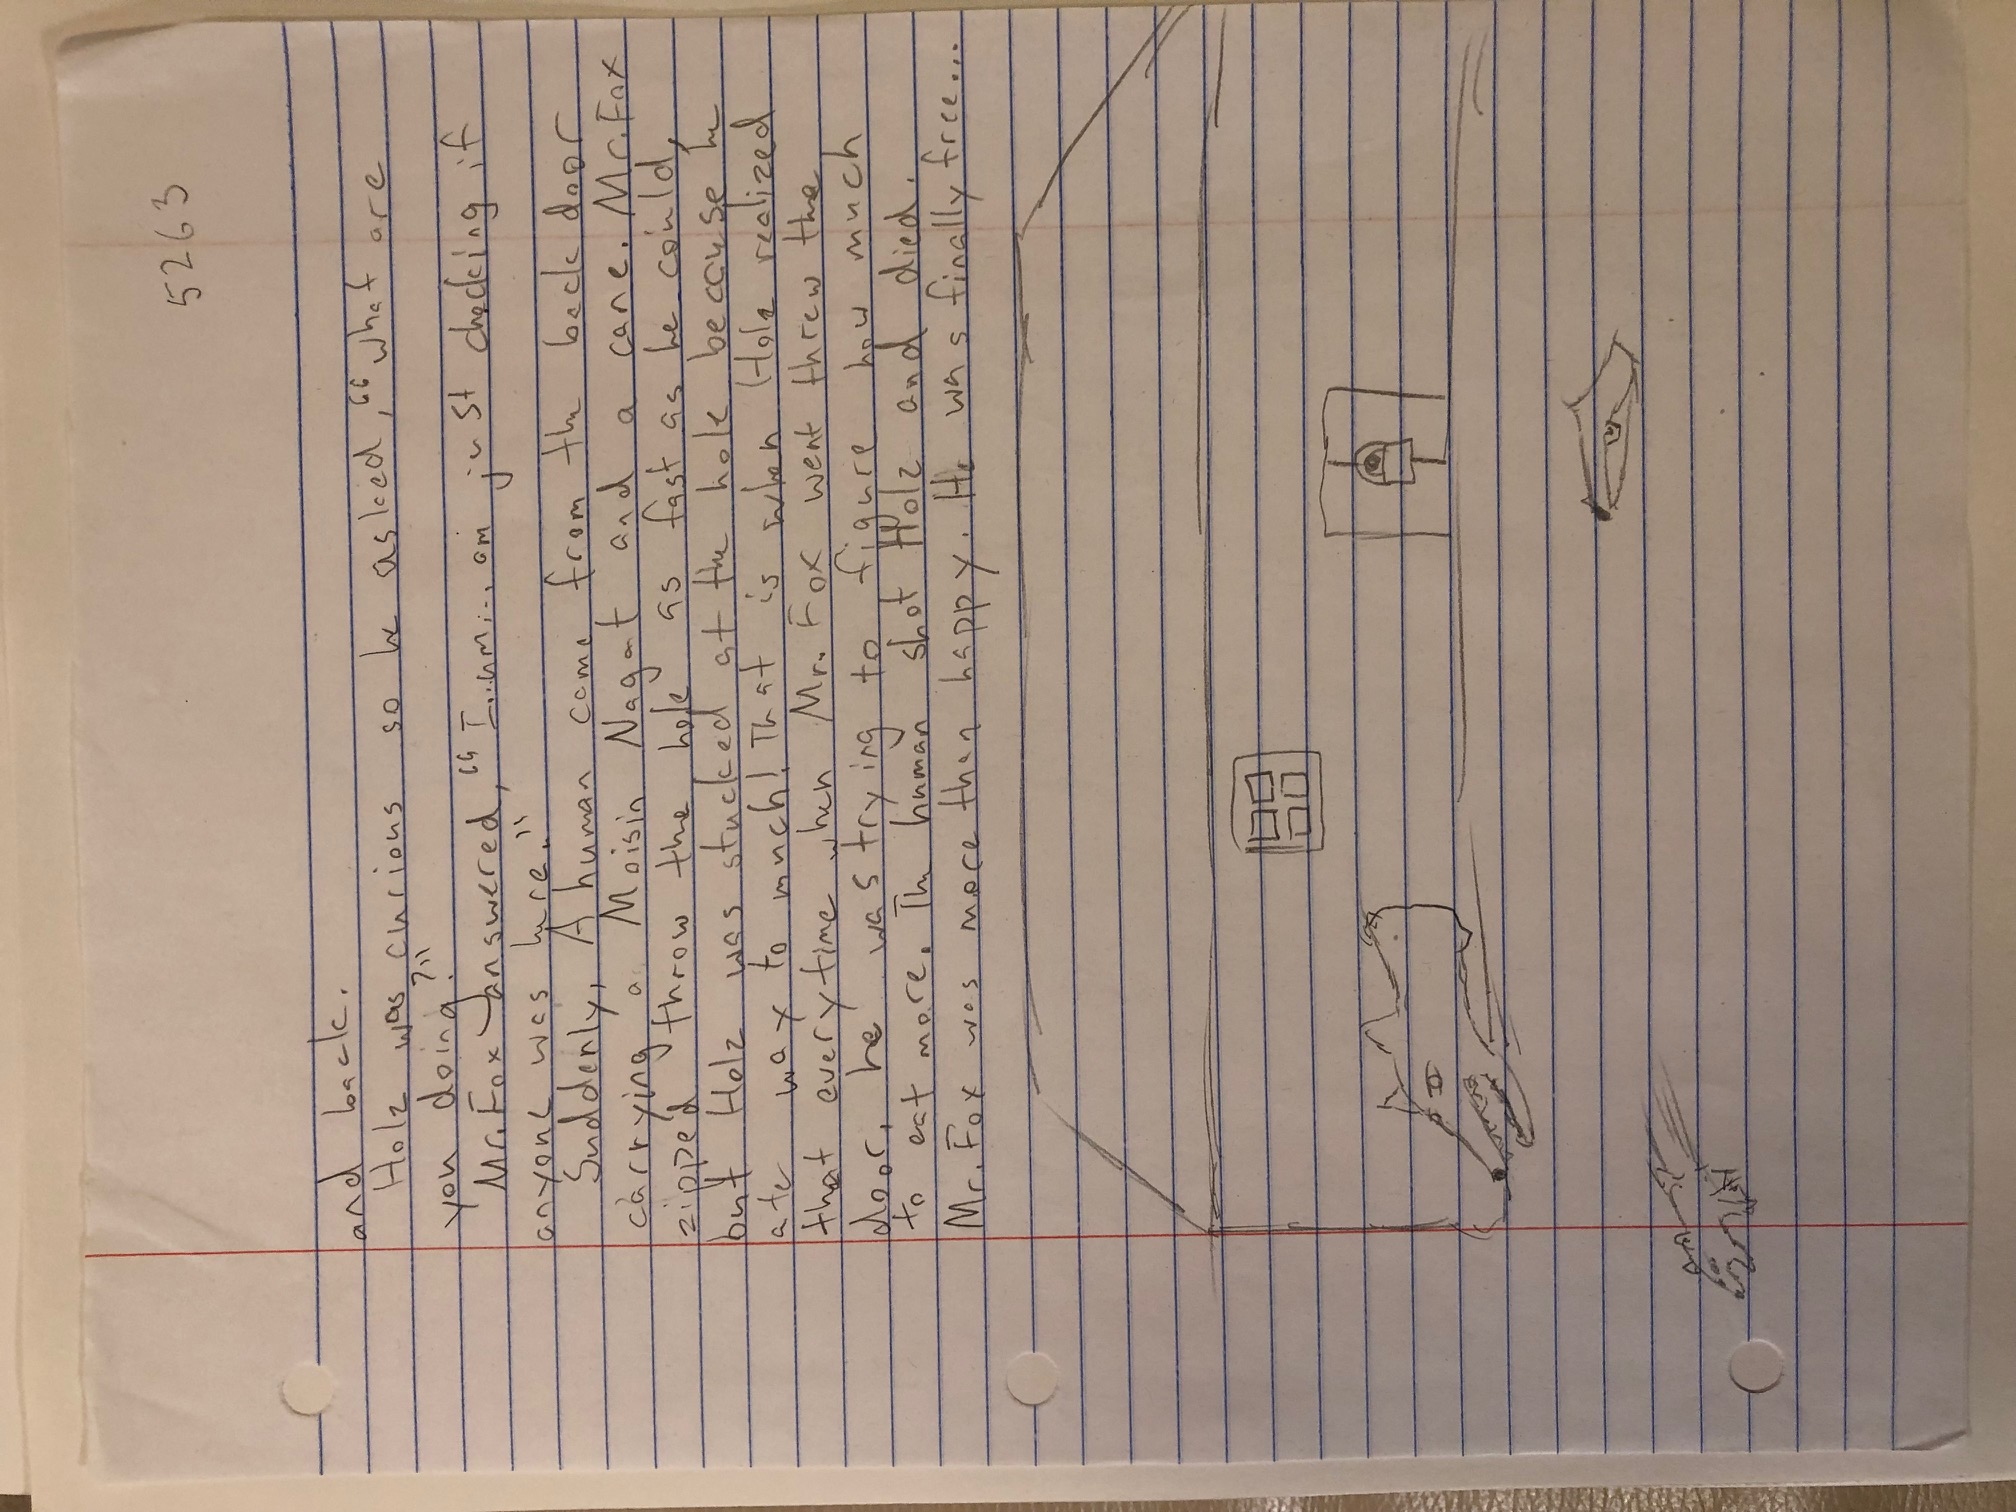 5263
and back.
Holz was curious so he asked, "what are
you doing?"
Mr. Fox answered, "I..um... am just checking if
anyone was here."
Suddenly, A human came from the back door
carrying a Moisin Nagat and a cane. Mr. Fox
zipped throw the hole as fast as he could,
but Holz was stucked at the hole because he
ate way to much! That is when Holz realized
that everytime when Mr. Fox went threw the
door, he was trying to figure how much
to eat more. The human shot Holz and died.
Mr. Fox was more than happy. He was finally free...